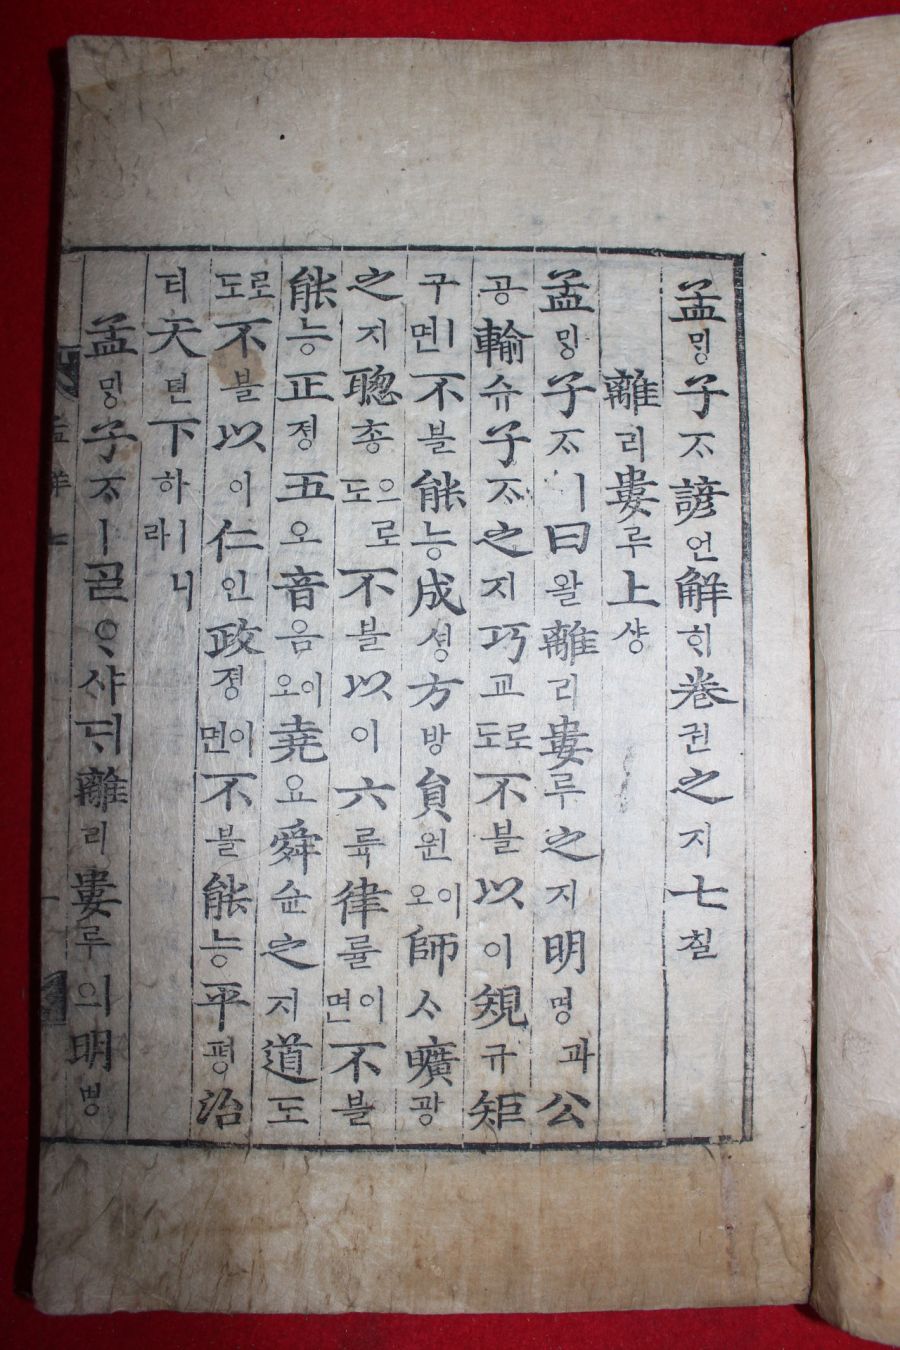 孟ᄆᆡᆼ子ᄌᆞ諺언觧ᄒᆡ卷권之지七칠
離리婁루上샹
孟ᄆᆡᆼ子ᄌᆞㅣ曰왈離리婁루之지明명과公
공輸슈子ᄌᆞ之지巧교로도不블以이䂓규矩
구ㅣ면不블能능成셩方방貟원이오師ᄉᆞ曠광
之지聰총으로도不블以이六륙律률이면不블
能능正졍五오音음이오堯요舜슌之지道도
로도不블以이仁인政졍이면不블能능平평治
티天텬下하ㅣ니라
孟ᄆᆡᆼ子ᄌᆞㅣᄀᆞᆯᄋᆞ샤ᄃᆡ離리婁루의明명